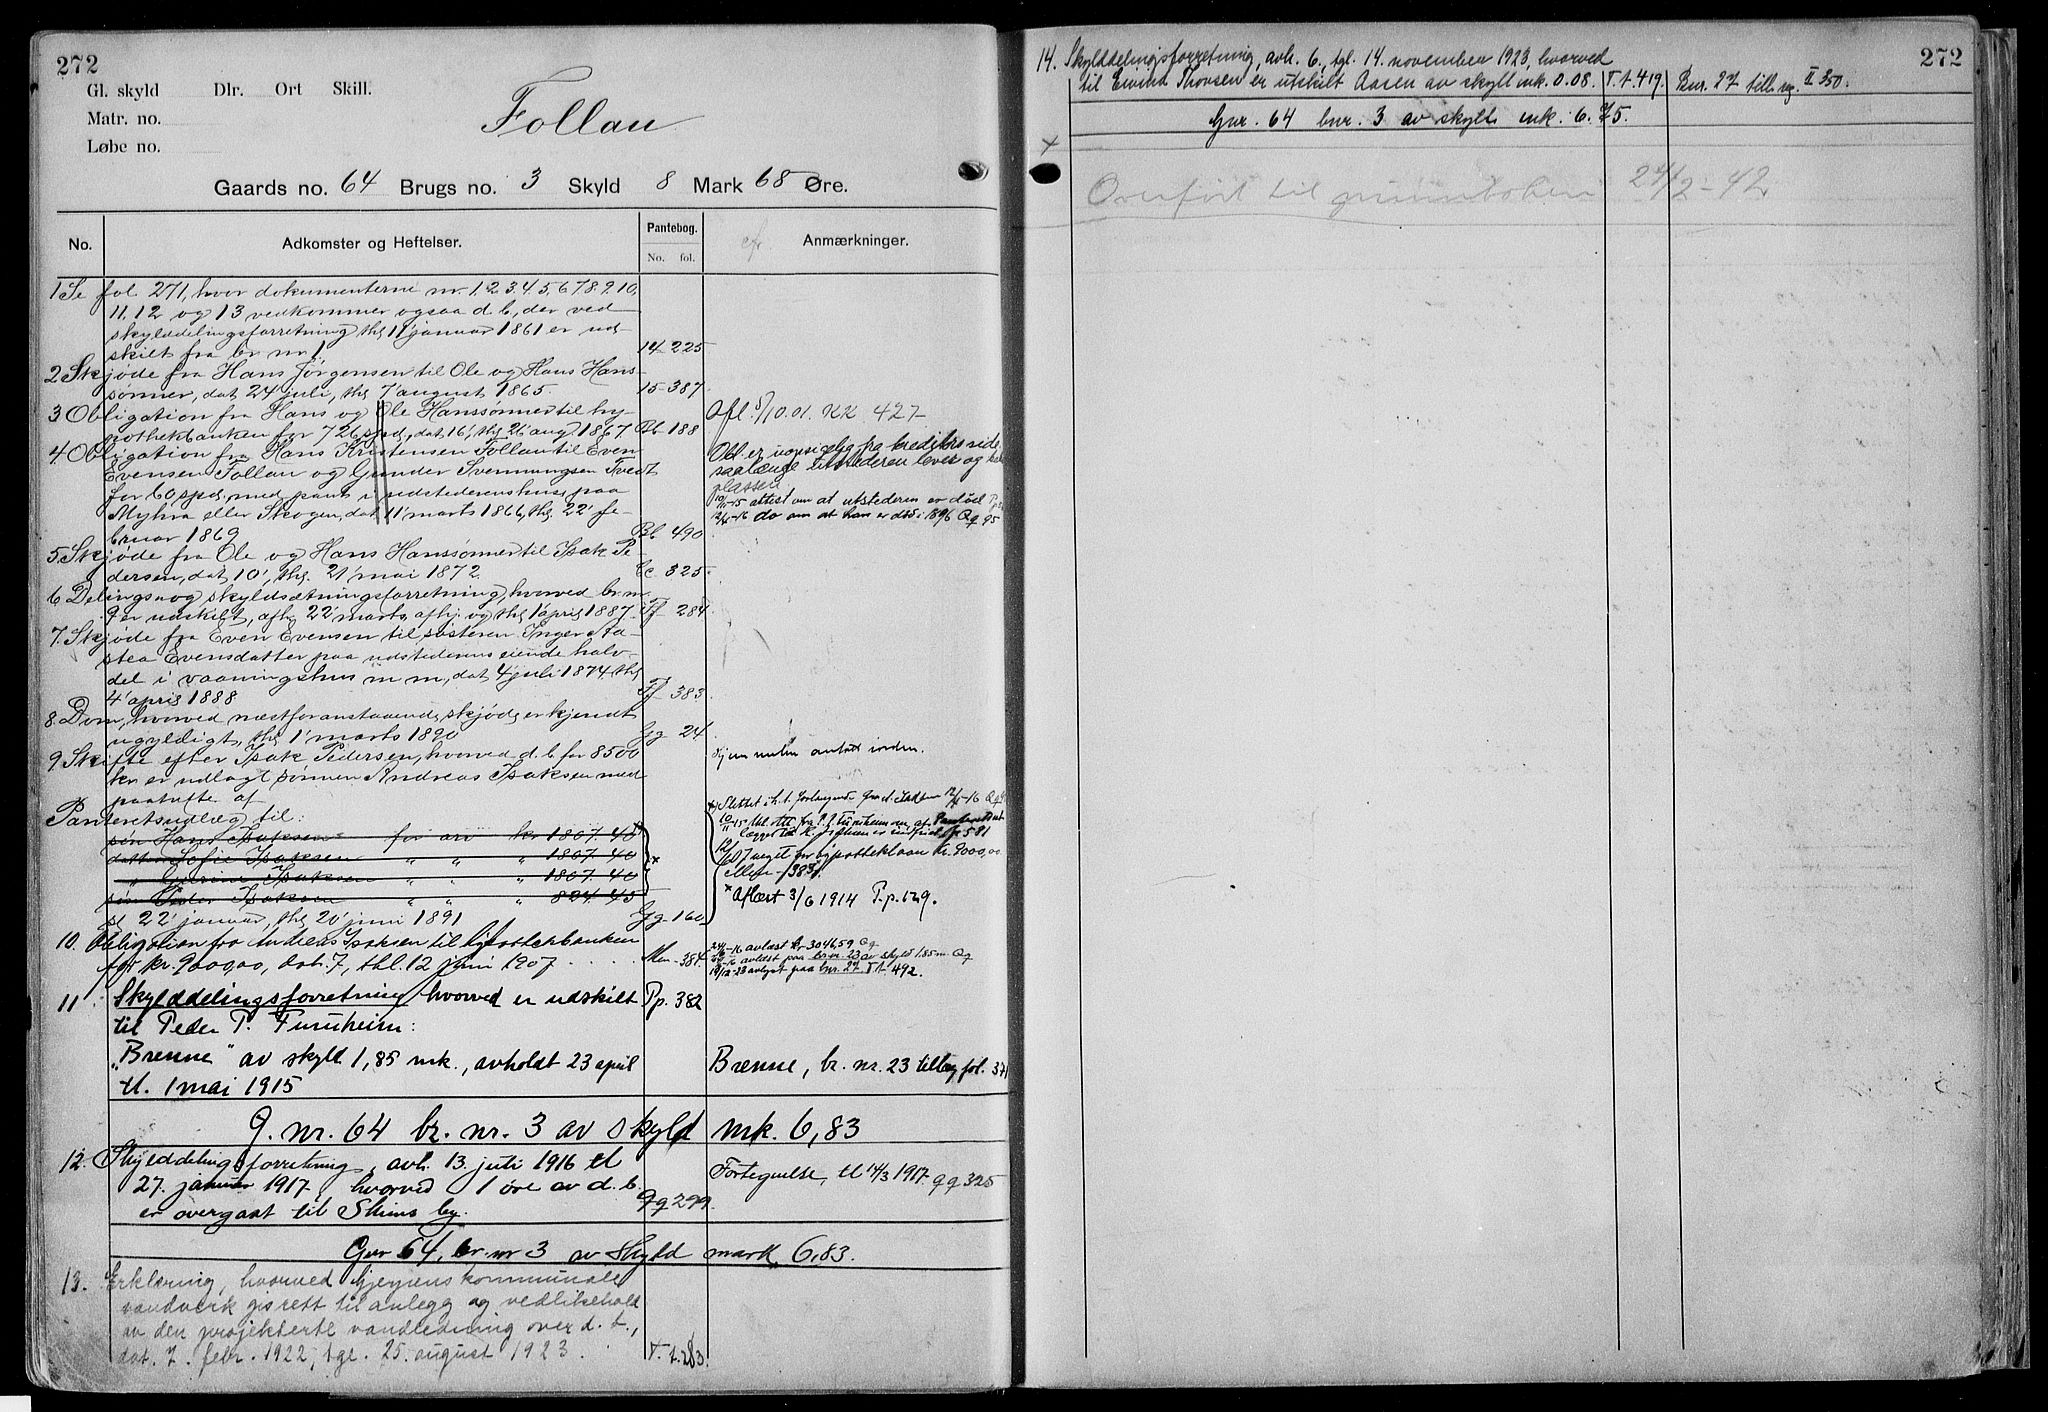 272
Gl. skyld Dlr. Ort Skill.
Matr. no.
Løbe no.
Follau
Gaards no. 64 Brugs no. 3 Skyld 8 Mark 68 Øre.
No. Adkomster og Heftelser. Pantebog. No. fol. cfr. Anmærkninger.
1 Se fol. 271, hvor dokumenterne nr. 1. 2. 3. 4. 5. 6. 7. 8. 9. 10.
11. 12 og 13 vedkommer ogsaa d. b., der ved
skylddelingsforretning thl. 11' januar 1861 er ud-
skilt fra br nr 1. 14 225
2 Skjøde fra Hans Jørgensen til Ole og Hans Hans-
sønner, dat 24' juli, thl 7' august 1865. 15-387
3 Obligation fra Hans og Ole Hanssønner til hy-
pothekbanken for 726 spd., dat 16', thl 26' aug 1867. Bb 188
Afl. 5/10.01. KK 427
4. Obligation fra Hans Kristensen Follau til Even
Evensen Follau og Gunder Svennungsen Tvedt
for 60 spd. med pant i udstederens hus paa
Myhra eller Skogen, dat 11' marts 1866, thl. 22' fe-
bruar 1869 Bb 490
Obl. er uopsigelig fra kreditors side
saalænge utstederen lever og
plassen
10/11-15 attest om at utstederen er død
12/5-16 do om at han er død i 1896 Qq 95
5. Skjøde fra Ole og Hans Hanssønner til Isak Pe-
dersen, dat. 10', thl. 21' mai 1872. Cc 325
6 Delings- og skyldsætningsforretning, hvorved br. nr
9 er udskilt, afh. 22' marts, afhj. og thl 1' april 1887. Ff 284
7. Skjøde fra Even Evensen til søsteren Inger Aa-
stea Evensdatter paa udstederens eiende halv-
del i vaaningshus m m, dat 4' juli 1874 thl
4' april 1888 Ff 383
8. Dom, hvorved næstforanstaaende skjøde er kjendt
ugyldigt, thl 1' marts 1890 Gg 24
9. Skifte efter Isak Pedersen, hvorved d. b. for 8500
kr er udlagt sønnen Andreas Isaksen med
paahefte af
Panteretsudlæg til:
søn Hans Isaksen for arv kr 1807. 40
datter Sofie Isaksen " " " 1807. 40
" Isaksen " " " 1807. 40
søn Peder Isaksen " " " 824. 45
sl 22' januar, thl 20' juni 1891 Gg-160
× Aflæst 3/6 1914 P.p. 129.
10. Obligation fra Andreas Isaksen til Hypothekbanken
for kr. 9000,00, dat. 7, thl. 12 juni 1907 Mm-384
avlæst kr 3046,59 Qq
avløst paa br. nr. 23 av skyld 1.85 m Qq
19/12-23 avlyst paa bnr. 27. T t 492.
11. Skylddelingsforretning hvorved er udskilt Pp. 382
til Peder P. Furuheim:
"Brenne" av skyld 1,85 mk., avholdt 23 april
tl. 1 mai 1915
Brenne, br. nr. 23 tillæg fol. 371
G. nr. 64 br. nr. 3 av skyld mk. 6,83
12. Skylddelingsforretning, avh. 13. juli 1916 tl
27. januar 1917 hvorved 1 øre av d. b.
er overgaat til Skiens by. Qq 299.
Fortegnelse, tl 14/3 1917 qq 325
Gnr 64, br. nr 3 av skyld mark 6,83.
13. Erklæring, hvorved Gjerpens kommunale
vandverk gis rett til anlegg og vedlikehold
av den projekterte vandledning over d. b.,
dat. 7. febr. 1922, tgl. 25. august 1923. T. t. 283.
272
14. Skylddelingsforretning, avh. 6., tgl. 14. november 1923, hvorved
til Thovsen er utskilt Aasen av skyld mk. 0.08. T. t. 419. Bnr. 27 till. reg. II 350.
Gnr. 64 bnr. 3 av skyld mk. 6.75.
+
Overført til grunnboken 24/2-42